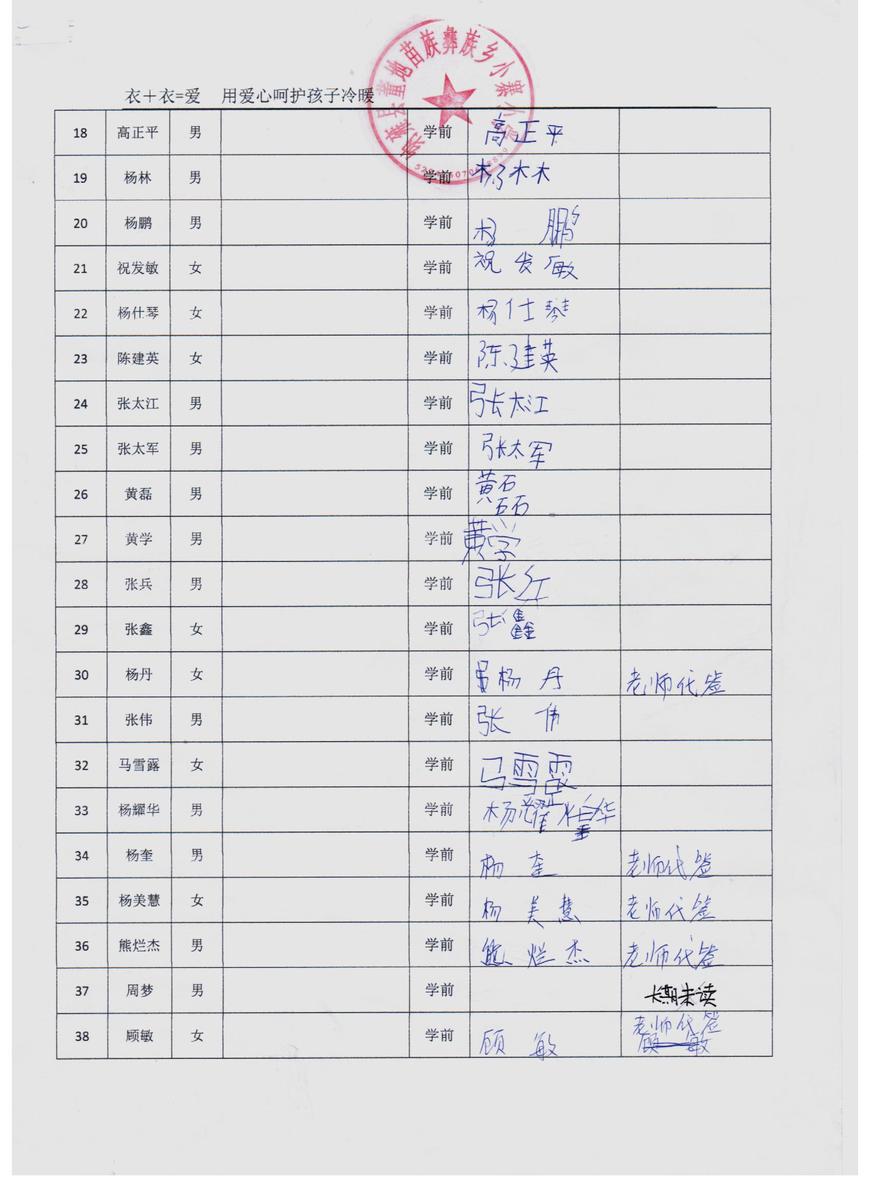 衣＋衣=爱 用爱心呵护孩子冷暖
县董地苗族彝族乡小寨小
18 高正平 男 学前 高正平
19 杨林 男 学前 杨林木
20 杨鹏 男 学前 杨 鹏
21 祝发敏 女 学前 祝发敏
22 杨仕琴 女 学前 杨仕琴
23 陈建英 女 学前 陈建英
24 张太江 男 学前 张太江
25 张太军 男 学前 张太军
26 黄磊 男 学前 黄磊
27 黄学 男 学前 黄学
28 张兵 男 学前 张红
29 张鑫 女 学前 张鑫
30 杨丹 女 学前 杨 丹 老师代签
31 张伟 男 学前 张 伟
32 马雪露 女 学前 马雪露
33 杨耀华 男 学前 杨耀华
34 杨奎 男 学前 杨 奎 老师代签
35 杨美慧 女 学前 杨 美 慧 老师代签
36 熊烂杰 男 学前 熊 烂 杰 老师代签
37 周梦 男 学前 长期未读
38 顾敏 女 学前 顾 敏 老师代签 顾 敏